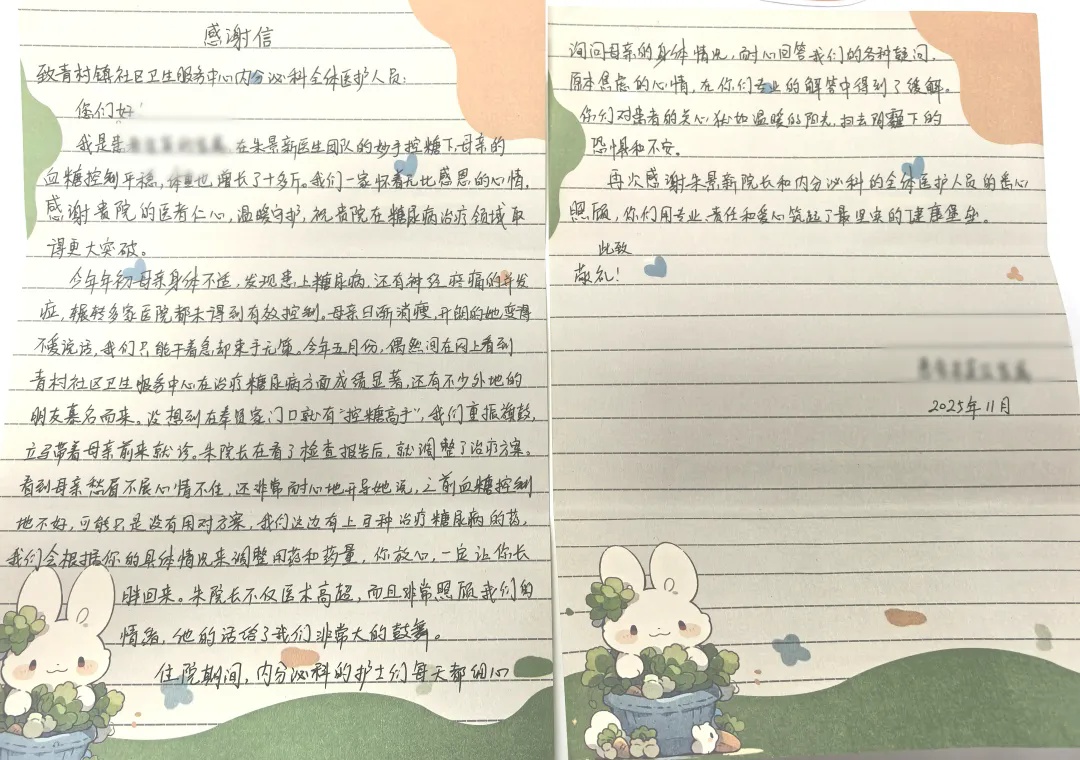 感谢信
致青村镇社区卫生服务中心内分泌科全体医护人员:
您们好!
我是患 在朱景新医生团队的妙手控糖下,母亲的
血糖控制平稳,体重也增长了十多斤。我们一家怀着无比感恩的心情,
感谢贵院的医者仁心,温暖守护,祝贵院在糖尿病治疗领域取
得更大突破。
今年年初母亲身体不适,发现患上糖尿病,还有神经疼痛的并发
症,辗转多家医院都未得到有效控制。母亲日渐消瘦,开朗的她变得
不爱说话,我们只能干着急却束手无策。今年五月份,偶然间在网上看到
青村社区卫生服务中心在治疗糖尿病方面成绩显著,还有不少外地的
朋友慕名而来。没想到在奉贤家门口就有“控糖高手”,我们重振旗鼓,
立马带着母亲前来就诊。朱院长在看了检查报告后,就调整了治疗方案。
看到母亲愁眉不展心情不佳,还非常耐心地开导她说,之前血糖控制
地不好,可能只是没有用对方案,我们这边有上百种治疗糖尿病的药,
我们会根据你的具体情况来调整用药和药量,你放心,一定让你长
胖回来。朱院长不仅医术高超,而且非常照顾我们的
情绪,他的话给了我们非常大的鼓舞。
住院期间,内分泌科的护士们每天都细心
询问母亲的身体情况,耐心回答我们的各种疑问,
原本焦虑的心情,在你们专业的解答中得到了缓解。
你们对患者的关心犹如温暖的阳光,扫去阴霾下的
恐惧和不安。
再次感谢朱景新院长和内分泌科的全体医护人员的悉心
照顾,你们用专业、责任和爱心筑起了最坚实的健康堡垒。
此致
敬礼!
2025年11月